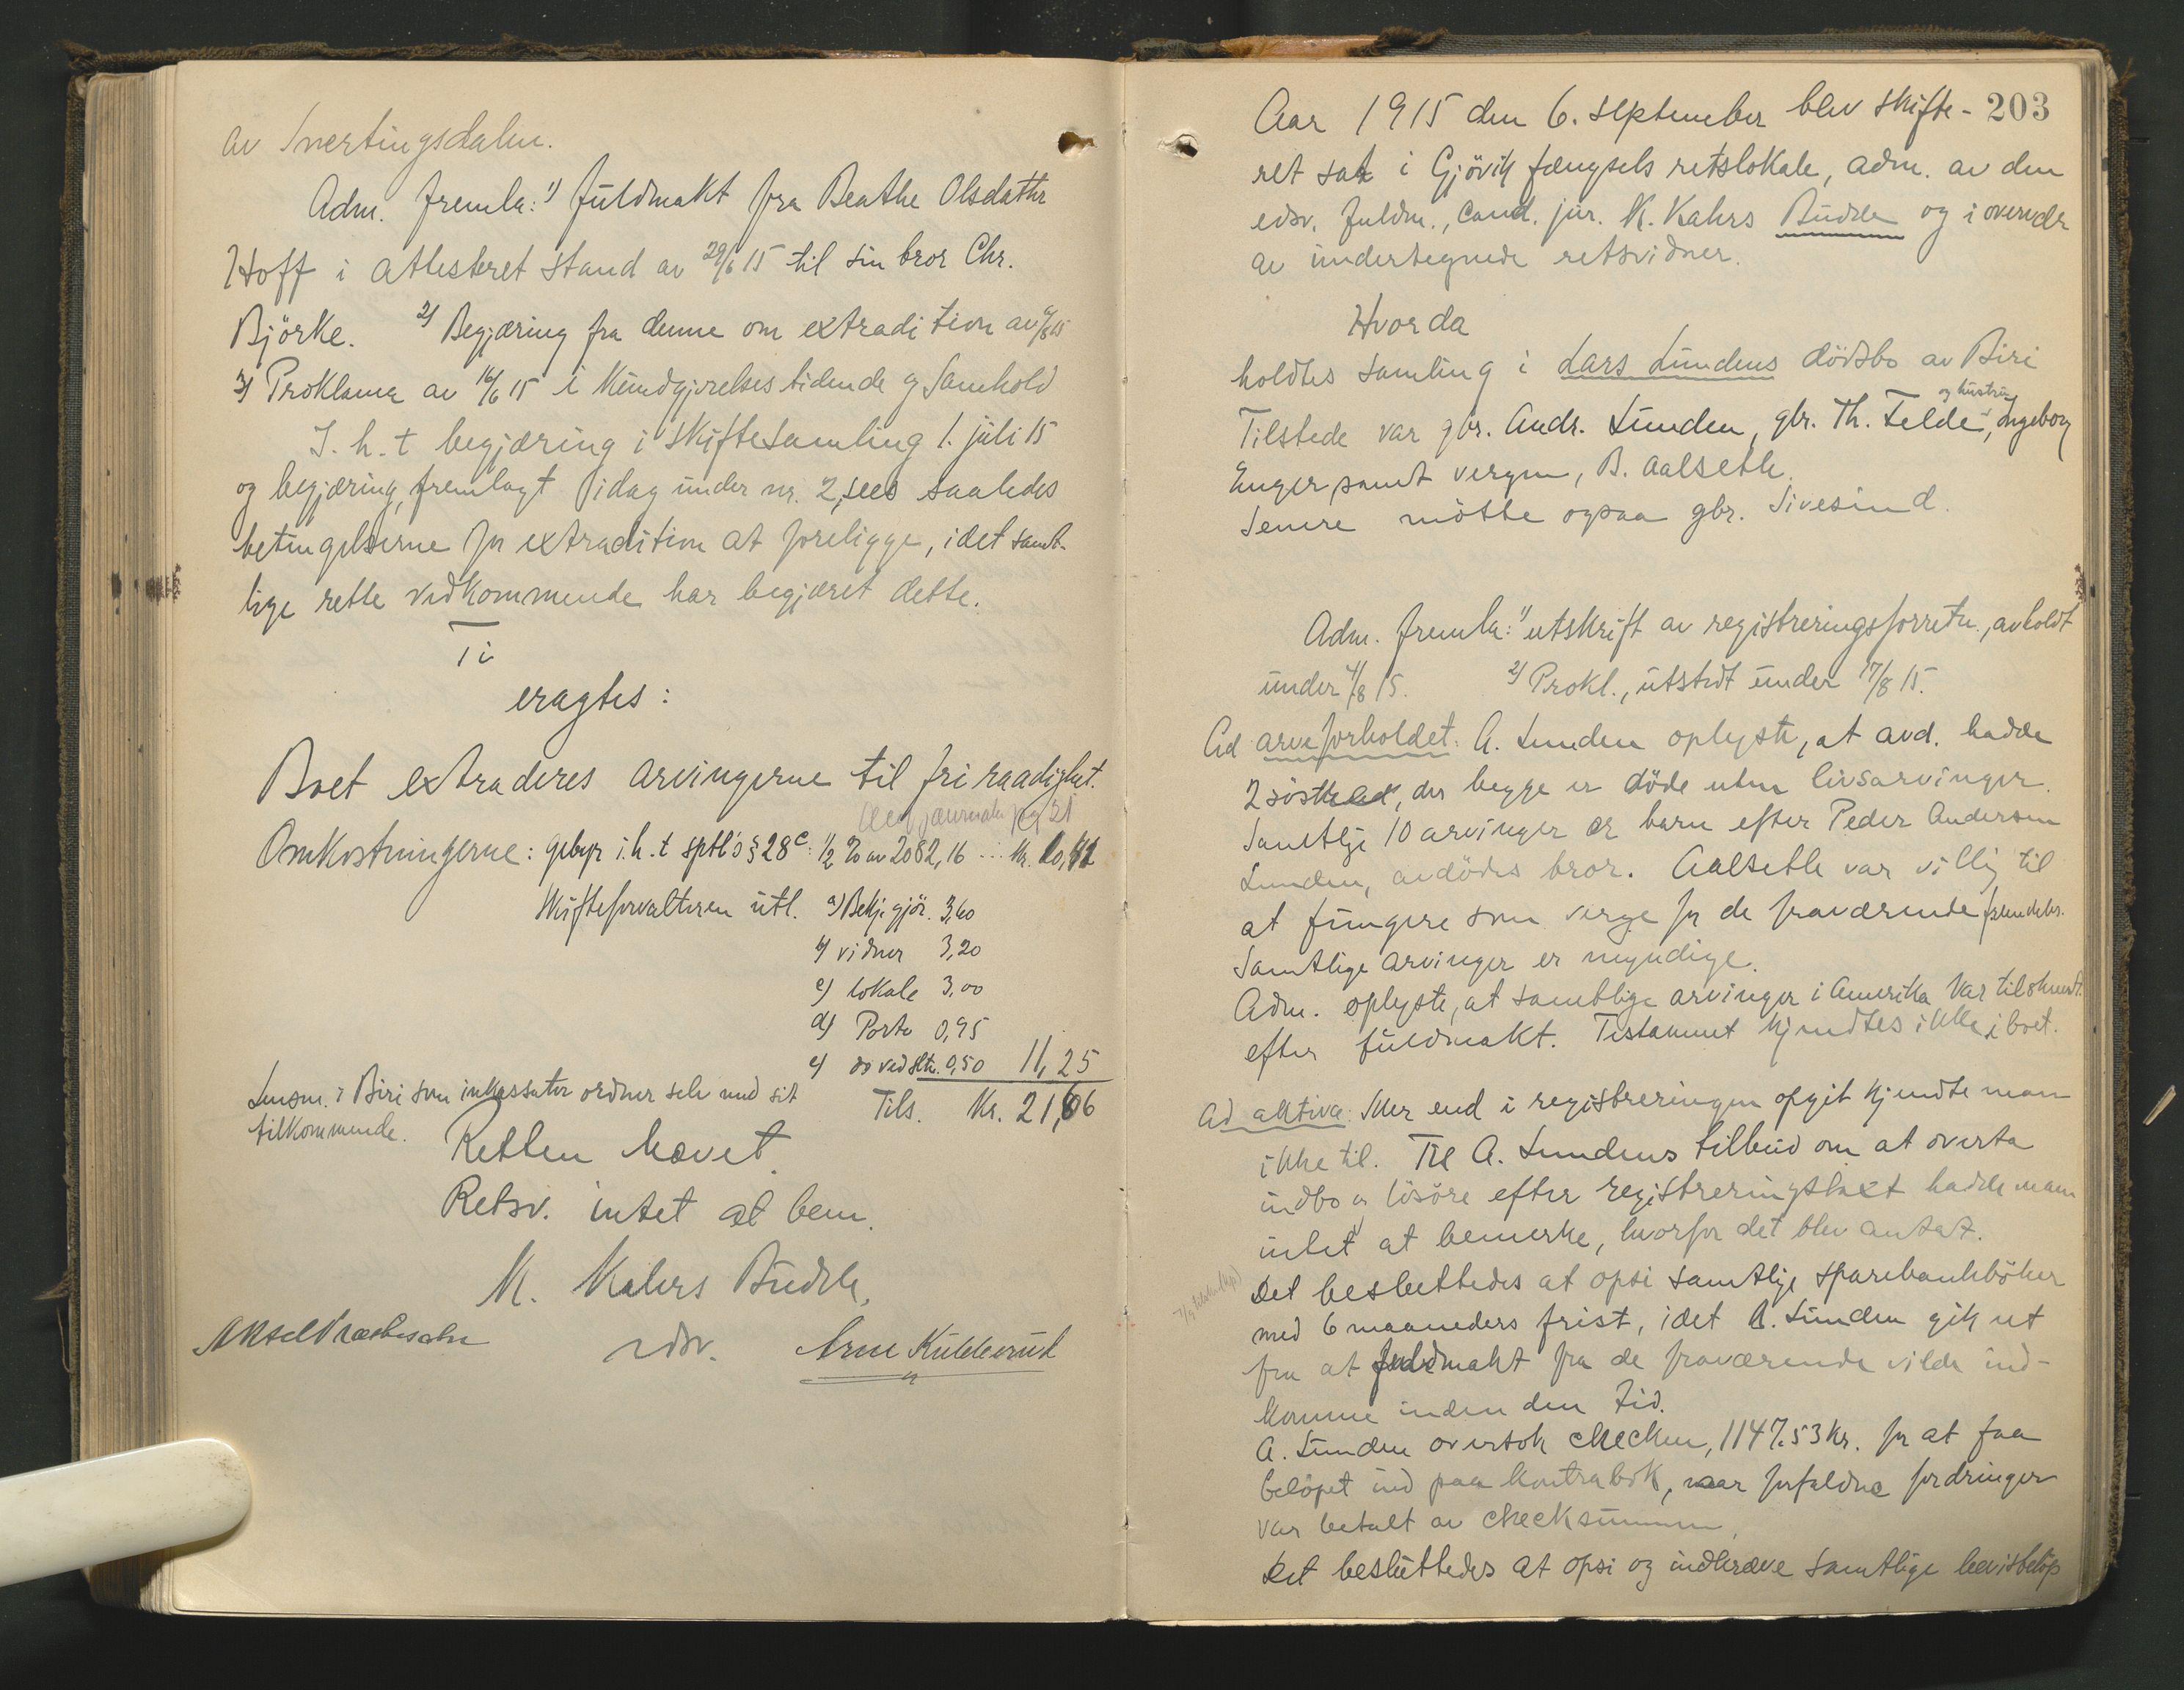 av Snertingsdalen.
Adm. fremla: 1) fuldmakt fra Beathe Olsdatter
Hoff i attesteret stand av 29/6 15 til sin bror Chr.
Björke. 2) Begjæring fra denne om extradition av /8 15
3) Proklama av 16/6 15 i Kundgjørelsestidende og Samhold
I. h. t begjæring i skiftesamling 1. juli 15
og begjæring, fremlagt idag under nr. 2, sees saaledes
betingelserne for extradition at foreligge, idet samt-
lige rette vedkommende har begjæret dette.
Ti
eragtes:
Boet extraderes arvingerne til fri raadighet.
journalen pag 21
Omkostningerne: gebyr i.h.t sptl's § 28 c: 1/2 % av 2082,16 ... kr. 10,41
Skifteforvalteren utl. a) Bekjgjör. 3,60
b) vidner 3,20
c) lokale 3,00
d) Porto 0,95
e) do ved slutn. 0,50 11,25
Tils. Kr. 21,66
Lensm. i Biri som inkassator ordner selv med sit
tilkommende.
Retten hævet.
Retsv. intet at bem.
K. Kahrs Budde,
edsv.
Aksel Præstesæter
Arne Kulterud
203
Aar 1915 den 6. september blev skifte-
ret sat i Gjövik fængsels retslokale, adm. av den
edsv. fuldm., cand. jur. K. Kahrs Budde og i overvær
av undertegnede retsvidner.
Hvorda
holdtes samling i Lars Lundens dödsbo av Biri
og hustru
Tilstede var gbr. Andr. Lunden, gbr. Th. Felde, Ingeborg
Enger, samt vergen, B. Aalseth.
Senere mötte ogsaa gbr. Sivesind.
Adm. fremla: 1) utskrift av registreringsforretn., avholdt
under 4/8 15. 2) Prokl., utstedt under 17/8 15.
Ad arveforholdet: A. Lunden oplyste, at avd. hadde
2 söstre, der begge er döde uten livsarvinger.
Samtlige 10 arvinger er barn efter Peder Andersen
Lunden, avdödes bror. Aalseth var villig til
at fungere som verge for de fraværende fremdeles.
Samtlige arvinger er myndige.
Adm. oplyste, at samtlige arvinger i Amerika var tilskrevet
efter fuldmakt. Testament kjendtes ikke i boet.
Ad aktiva: Mer end i registreringen opgit kjendte man
ikke til. Til A. Lundens tilbud om at overta
indbo og lösöre efter registreringstaxt hadde man
intet at bemerke, hvorfor det blev antat.
Det besluttedes at opsi samtlige sparebankböker
med 6 maaneders frist, idet A. Lunden gik ut
fra at fuldmakt fra de fraværende vilde ind-
komme inden den tid.
A. Lunden overtok checken, 1147.53 kr. for at faa
belöpet ind paa kontrabok, naar forfaldne fordringer
var betalt av checksummen.
Det besluttedes at opsi og indkræve samtlige bevisbelöp